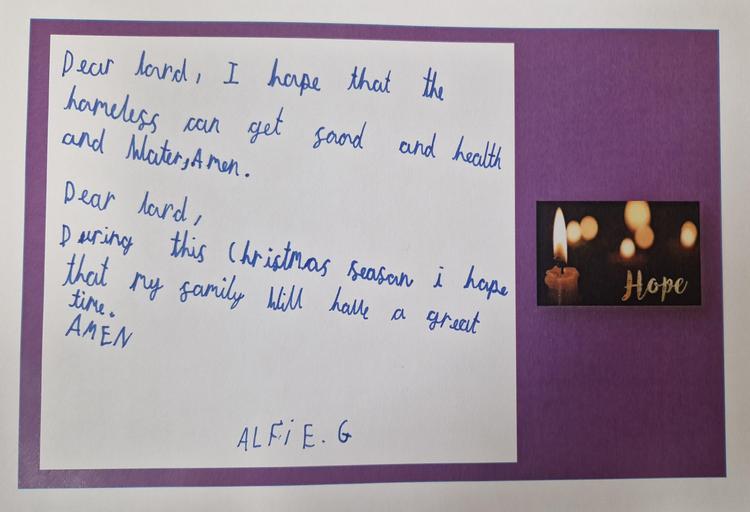 Dear lord, I hope that the
homeless can get food and health
and Water, Amen.
Dear lord,
During this Christmas season i hope
that my family Will have a great
time.
AMEN
ALFiE. G
Hope